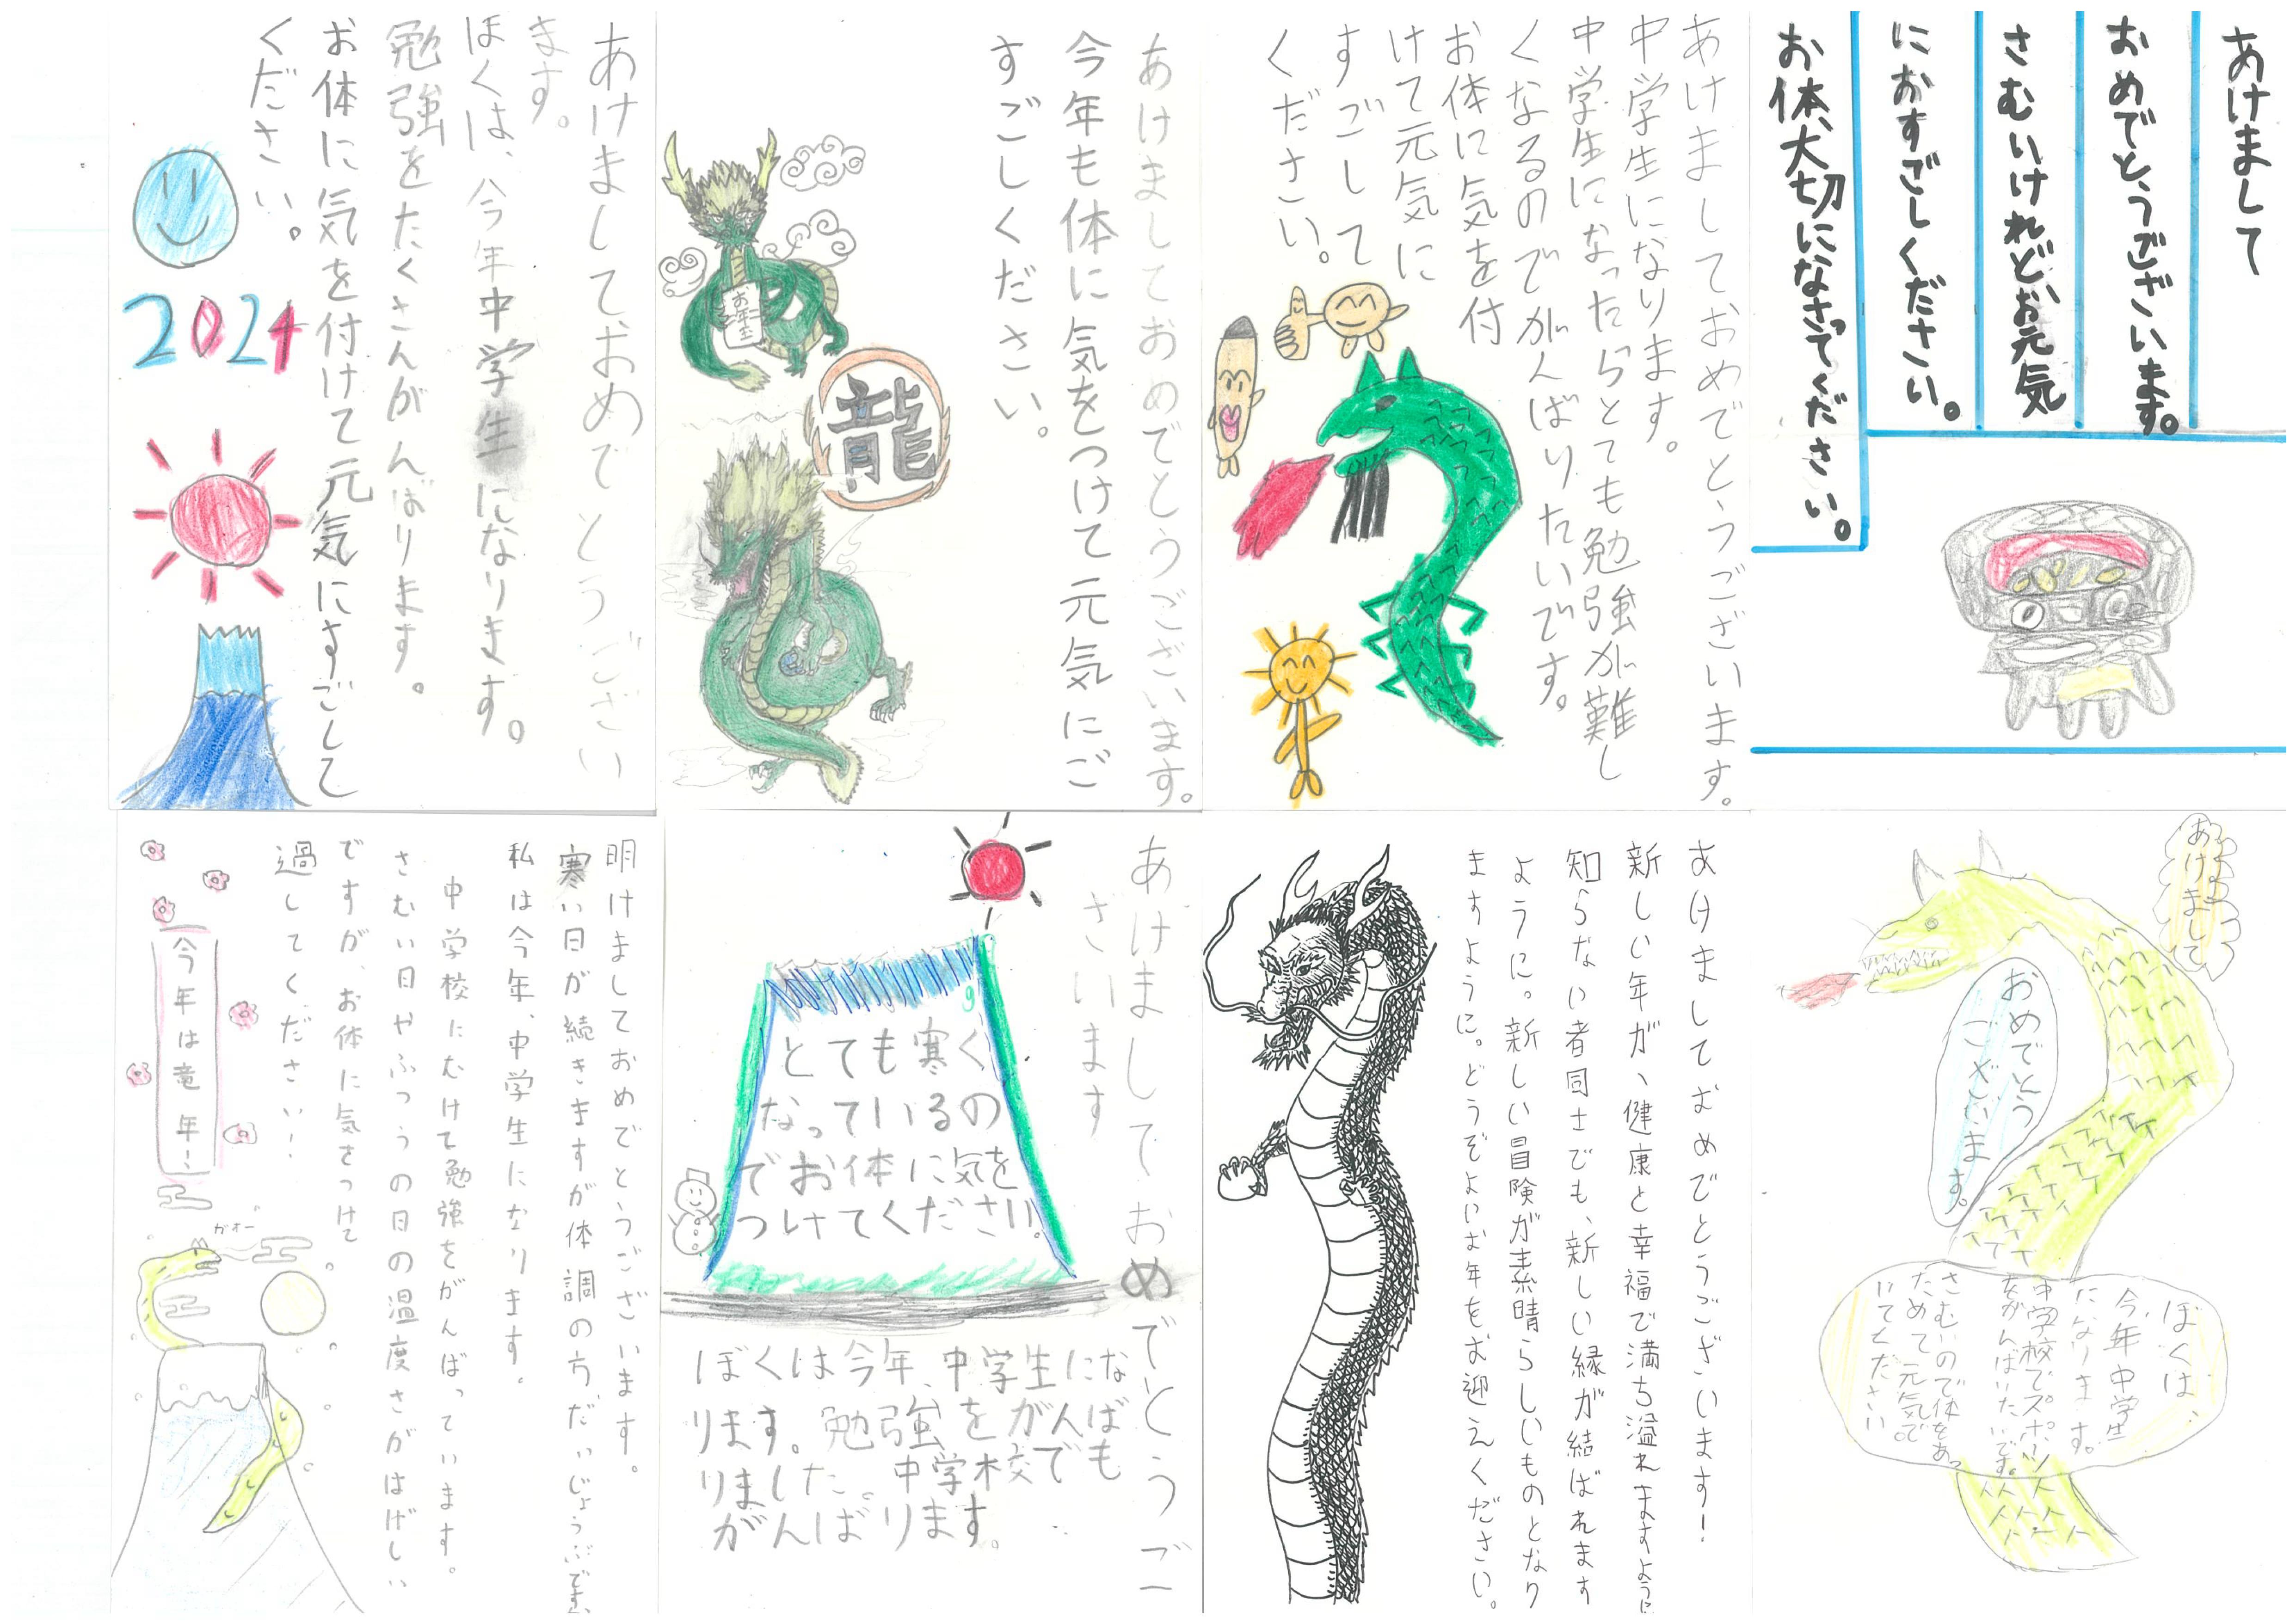 あけまして
おめでとうございます。
さむいけれど、お元気
におすごしください。
お体、大切になさってください。
あけましておめでとうございます。
中学生になります。
中学生になったらとても勉強が難し
くなるのでがんばりたいです。
お体に気を付
けて元気に
すごして
ください。
あけましておめでとうございます。
今年も体に気をつけて元気にご
すごしください。
お年玉
龍
あけましておめでとうござい
ます。
ぼくは、今年中学生になります。
勉強をたくさんがんばります。
お体に気を付けて元気にすごして
ください。
2024
あけまして
おめでとう
ございます。
ぼくは、
今年中学生
になります。
中学校でスポーツ
をがんばりたいです。
さむいので体をあっ
ためて元気で
いてください。
あけましておめでとうございます!
新しい年が、健康と幸福で満ち溢れますように
知らない者同士でも、新しい縁が結ばれます
ように。新しい冒険が素晴らしいものとなり
ますように。どうぞよいお年をお迎えください。
あけましておめでとうご
ざいます
とても寒く
なっているの
でお体に気を
つけてください。
ぼくは今年、中学生にな
ります。勉強をがんば
りました。中学校でも
がんばります。
明けましておめでとうございます。
寒い日が続きますが体調の方だいじょうぶですか、
私は今年、中学生になります。
中学校にむけて勉強をがんばっています。
さむい日やふつうの日の温度さがはげしい
ですが、お体に気をつけて
過してください!
今年は竜年!
ガオー